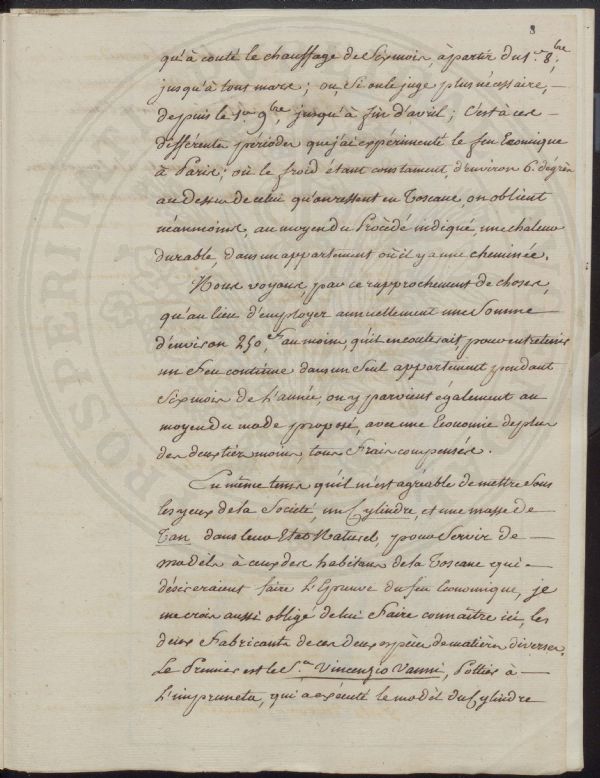 8
qu'à couté le chauffage de Six mois, à partir du 1.er 8.bre
jusqu'à tout mars; ou, Si on le juge plus nécessaire, —
depuis le 1.er 9.bre, jusqu'à fin d'avril; C'est à ces —
différents périodes que j'ai expérimenté le feu Economique
à Paris; où le froid étant constament, d'environ 6. dégrés
au dessus de celui qu'on ressent en Toscane, on obtient
néanmoins, au moyen du Procédé indiqué, une chaleur
durable, dans un appartement où il y a une cheminée.
Nous voyons, par ce rapprochement de choses,
qu'au lieu d'employer annuellement une Somme —
d'environ 250,F au moin, qu'il en couterait, pour entretenir
un Feu continue dans un Seul appartement pendant
Six mois de l'année, on y parvient également au
moyen du mode proposé, avec une Economie de plus
des deux tiers moins, tous Frais compensés.
En même tems qu'il m'est agréable de mettre Sous
les yeux de la Société, un Cylindre, et une masse de
Tan, dans leur Etat Naturel, pour Servir de —
modèle à ceux des habitans de la Toscane qui —
désireraient faire L'Epreuve du feu Economique, je
me crois aussi obligé de lui Faire connaître ici, les
deux Fabricants de ces deux espèces de matières diverses.
Le Premier est le S.r Vincenzio Vanni, Pottier à —
L'impruneta, qui a exécuté le modèl du Cylindre